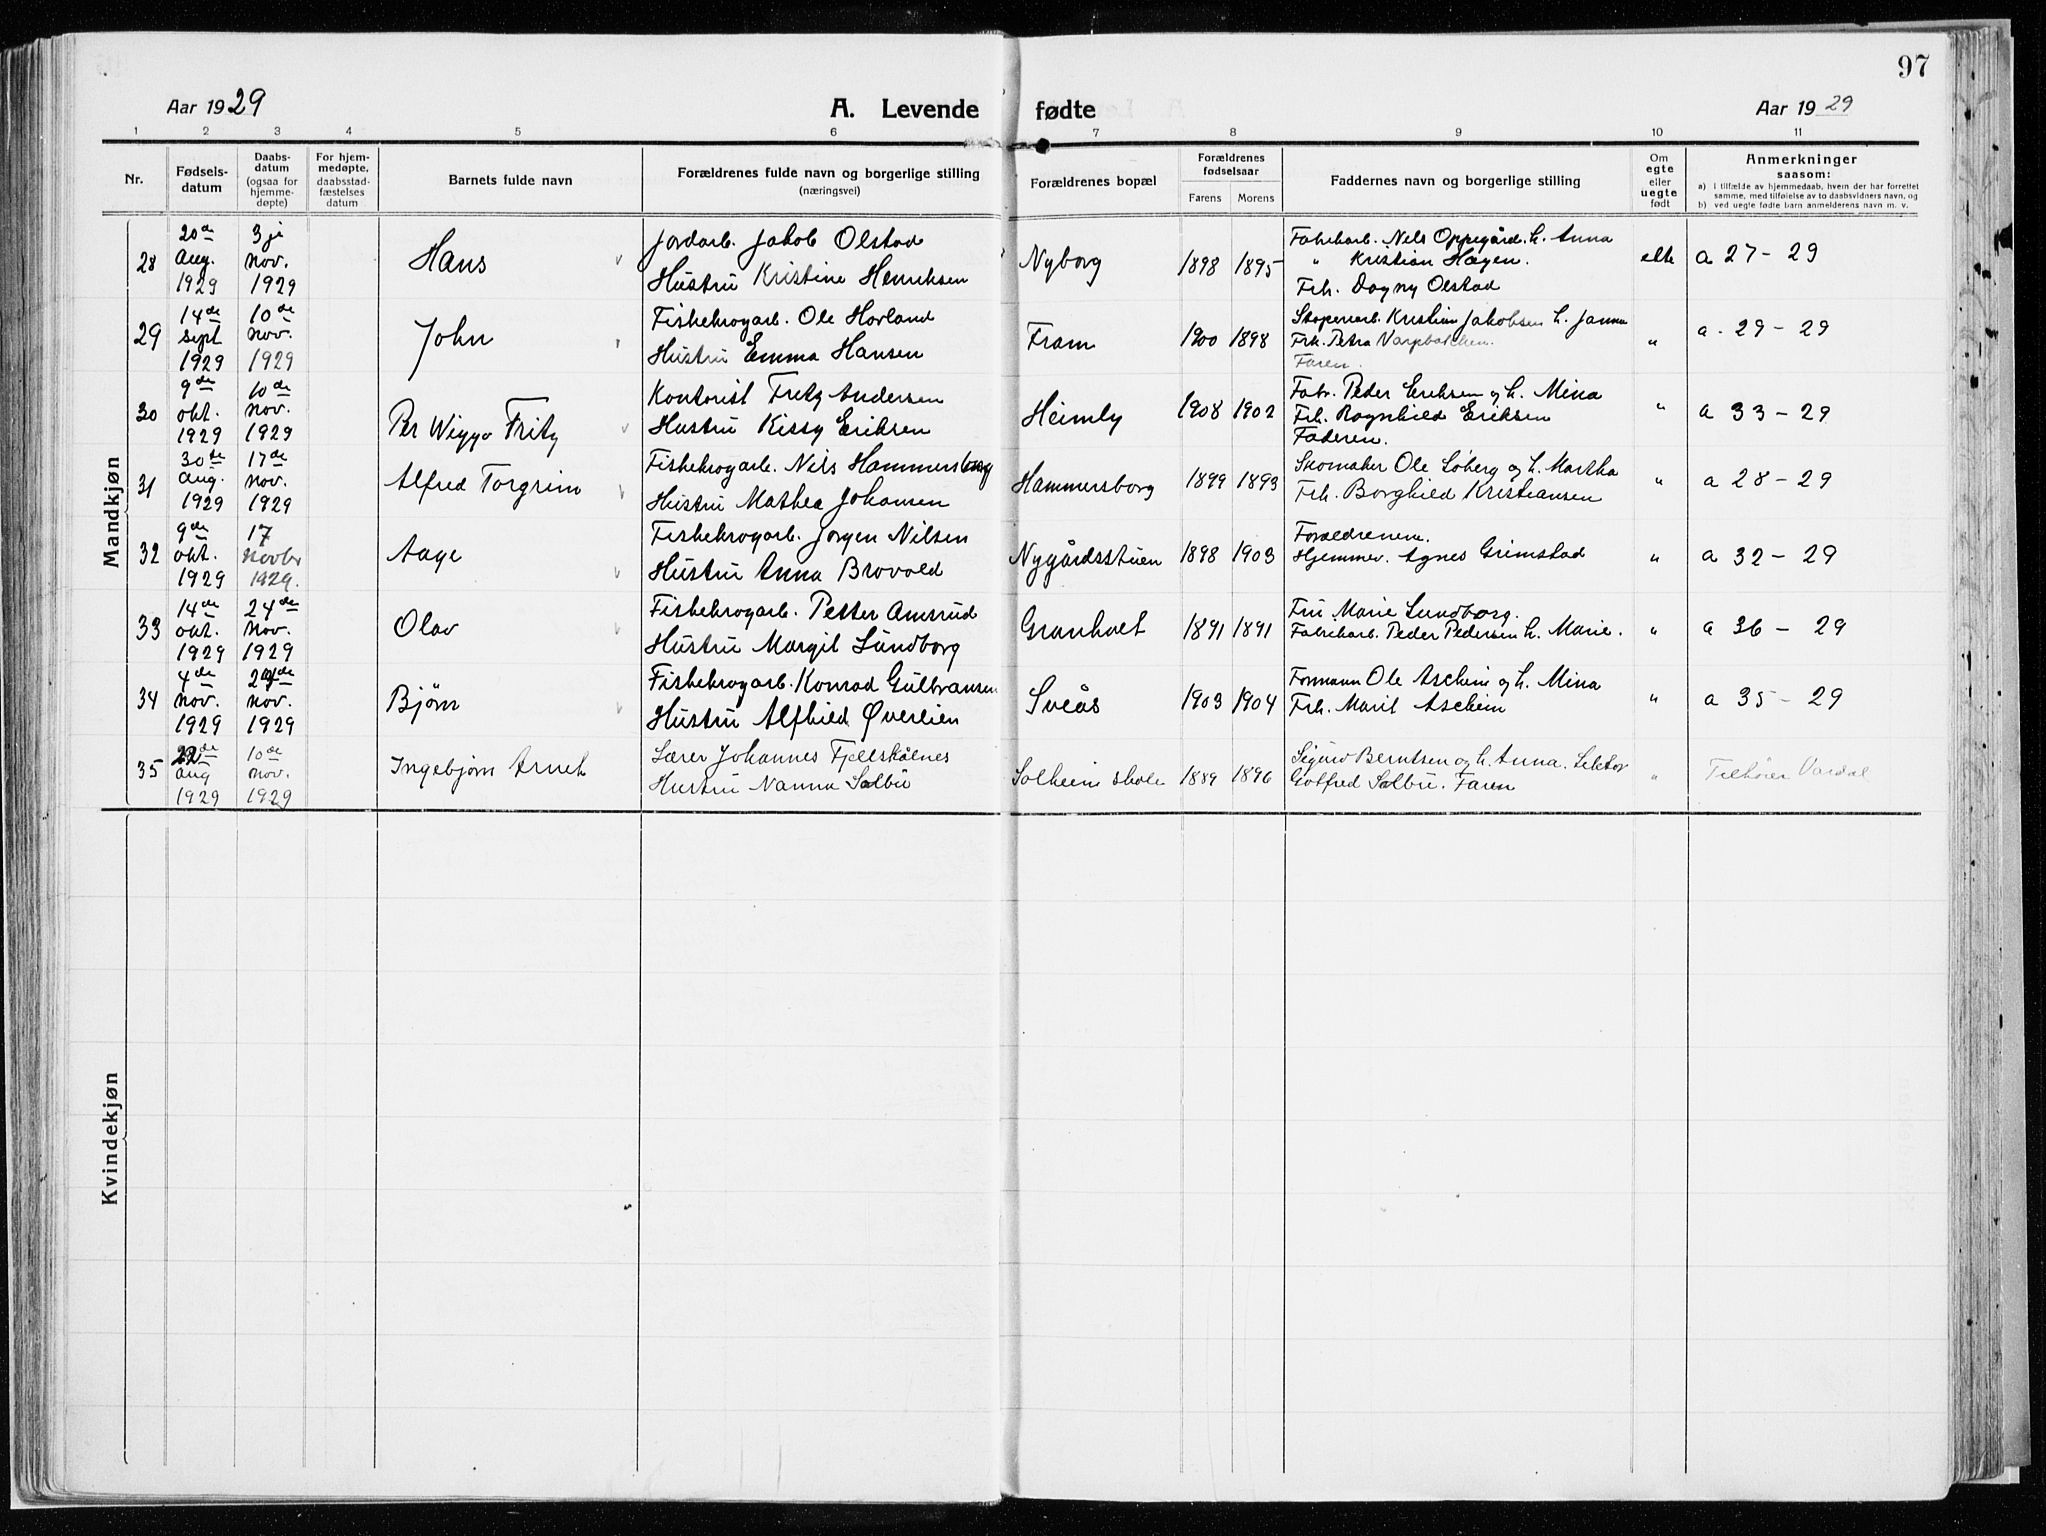 97
Aar 1929
A. Levende fødte
Aar 1929
1 2 3 4 5 6 7 8 9 10 11
Nr.
Fødsels-
datum
Daabs-
datum
(ogsaa for
hjemme-
døpte)
For hjem-
medøpte,
daabsstad-
fæstelses
datum
Barnets fulde navn
Forældrenes fulde navn og borgerlige stilling
(næringsvei)
Forældrenes bopæl
Forældrenes
fødselsaar
Farens Morens
Faddernes navn og borgerlige stilling
Om
egte
eller
uegte
født
Anmerkninger
saasom:
a) I tilfælde av hjemmedaab, hvem der har forrettet
samme, med tilføielse av to daabsvidners navn, og
b) ved uegte fødte barn anmelderens navn m. v.
Mandkjøn
28
20de
Aug.
1929
3je
Nov.
1929
Hans
Jordarb. Jakob Olstad
Hustru Kristine Henriksen
Nyborg
1898 1895
Fabrikarb. Nils Oppegård. h. Anna
" Kristian Hagen.
Frk. Dagny Olstad
ekte
a 27 - 29
29
14de
sept
1929
10de
Nov.
1929
John
Fiskekrogarb. Ole Hovland
Hustru Emma Hansen
Fram
1900 1898
Kristian Jakobsen h. Janna
Frk. Petra
Faren.
"
a. 29 - 29
30
9de
okt.
1929
10de
Nov.
1929
Per Wiggo Fritz
Kontorist Fritz Andersen
Hustru Kissy Eriksen
Heimly
1908 1902
Fabr. Peder Eriksen og h. Mina
Frk. Ragnhild Eriksen
Faderen.
"
a 33 - 29
31
30te
Aug.
1929
17de
Nov.
1929
Alfred Torgrim
Fiskekrogarb. Nils Hammersborg
Hustru Mathea Johansen
Hammersborg
1899 1893
Skomaker Ole Løberg og h. Martha
Frk. Borghild Kristiansen
"
a 28 - 29
32
9de
okt.
1929
17
Novbr
1929.
Aage
Fiskekrogarb. Jørgen Nilsen
Hustru Anna Brovold
Nygårdsstuen
1898 1903
Foreldrene.
Hjemmev. Agnes Grimstad
"
a 32 - 29
33
14de
okt.
1929
24de
Nov.
1929
Olav
Fiskekrogarb. Petter Amsrud
Hustru Margit Lundborg
Granholt
1891 1891
Fru Marie Lundborg.
Fabrikarb. Peder Pedersen h. Marie.
"
a 36 - 29
34
4de
Nov.
1929
24de
Nov.
1929
Bjørn
Fiskekrogarb. Konrad Gulbransen
Hustru Alfhild Øverlien
Sveås
1903 1904
Formann Ole Aschim og h. Mina
Frk. Marit Aschim
"
a 35 - 29
35
22de
Aug
1929
10de
Nov.
1929
Ingebjørn Arnet
Lærer Johannes Fjellskålnes
Hustru Nanna Sælbu
Solheim skole
1889 1896
Sigurd Berntsen og h. Anna. Lektor
Gotfred Sælbu. Faren
"
Tilhører Vardal
Kvindekjøn